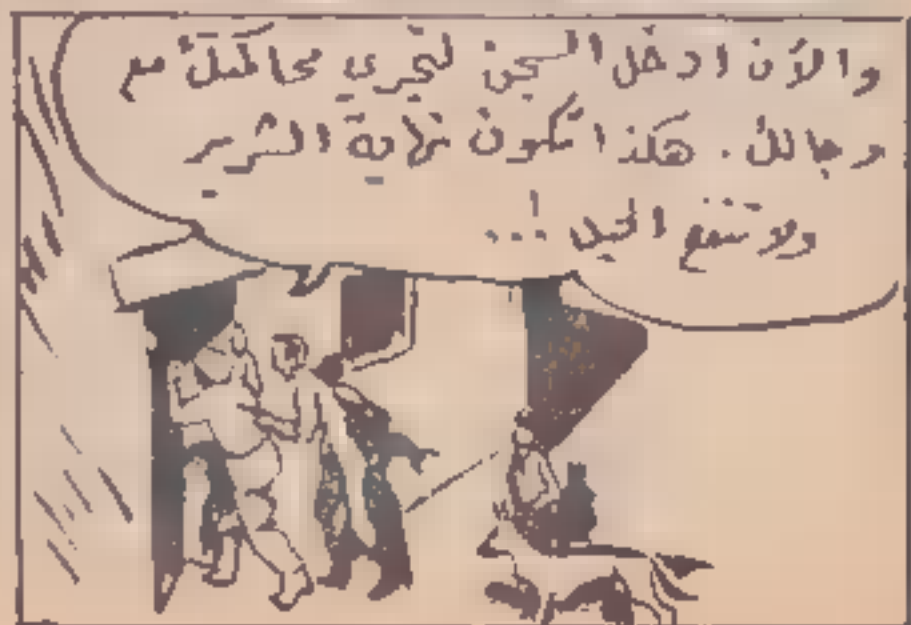 والآن ادخل السجن لتجري محاكمتك مع
رجالك. هكذا تكون نهاية الشرير
ولا تنفع الحيل !...